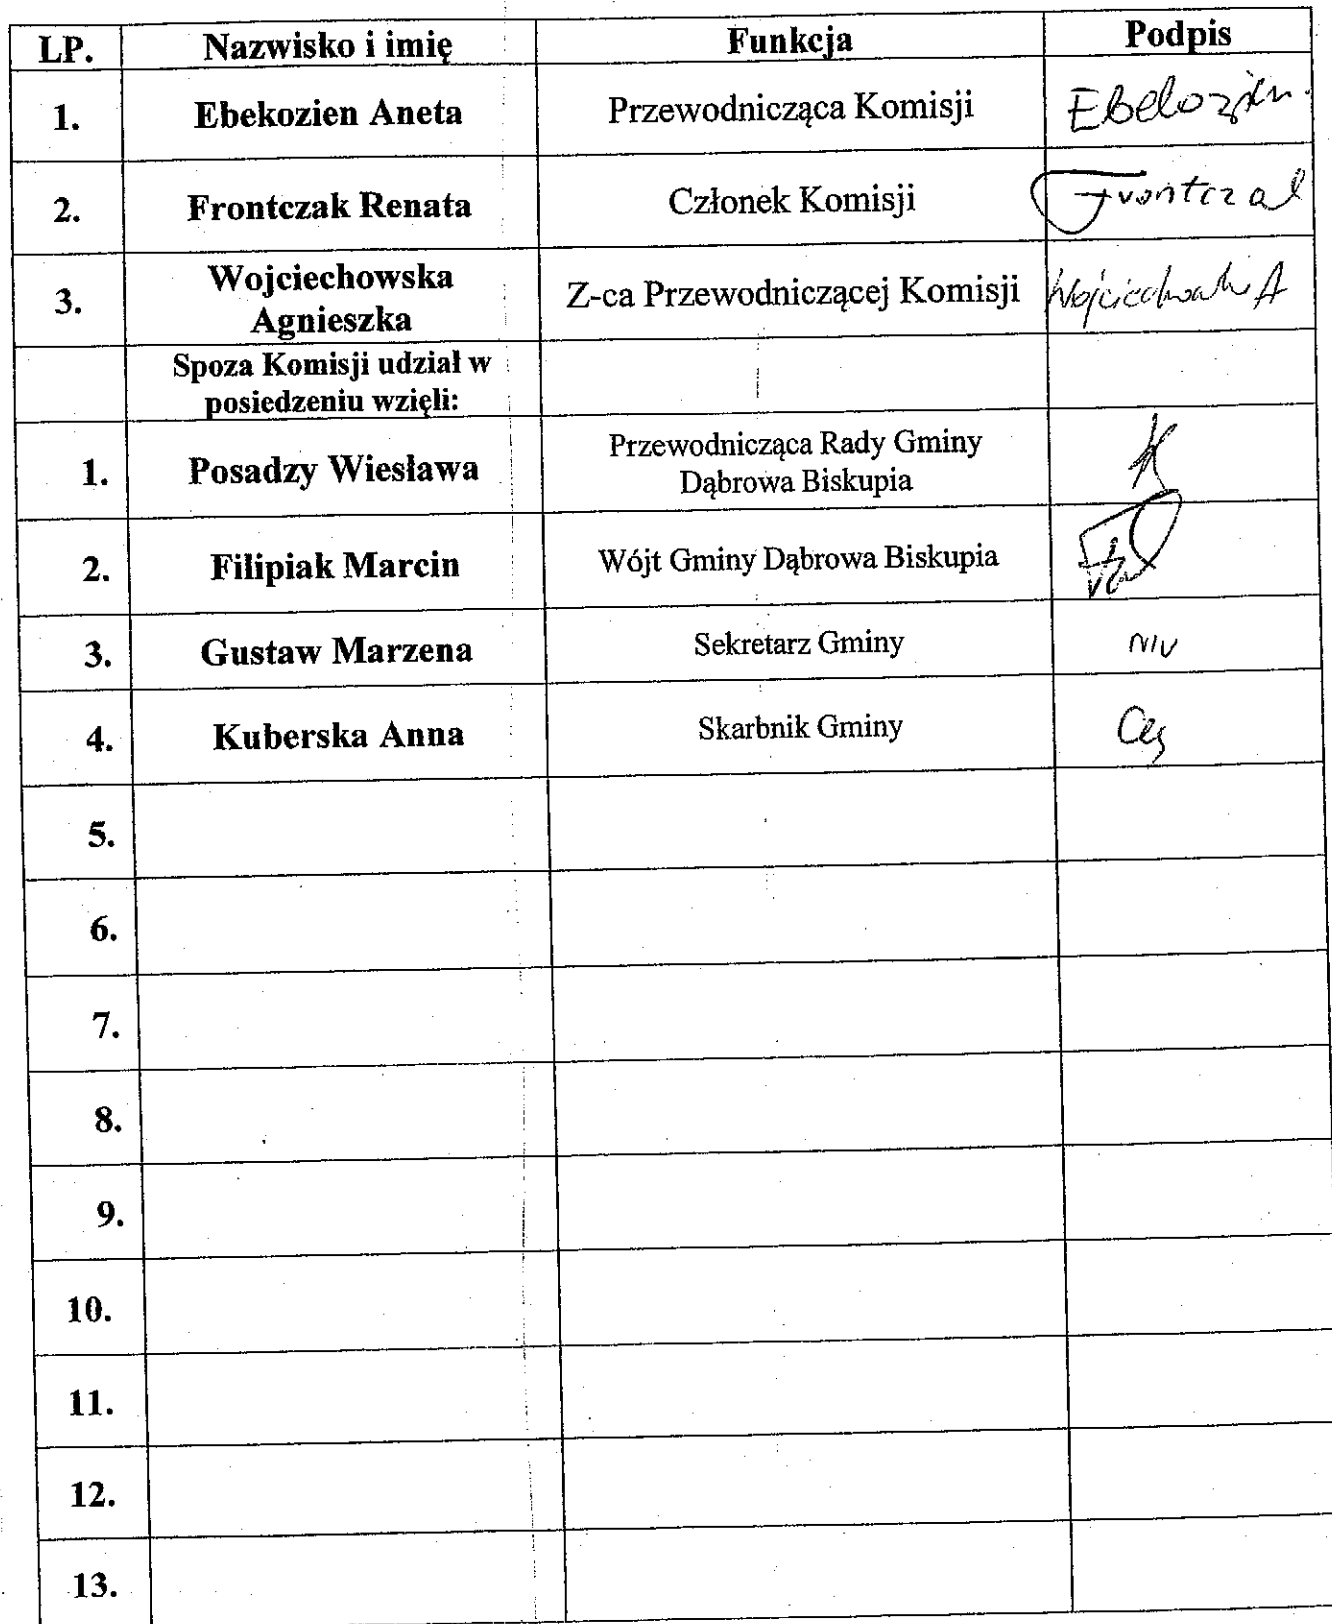 LP. Nazwisko i imię Funkcja Podpis
1. Ebekozien Aneta Przewodnicząca Komisji Ebekozien
2. Frontczak Renata Członek Komisji Frontczak
3. Wojciechowska Agnieszka Z-ca Przewodniczącej Komisji Wojciechowska A
Spoza Komisji udział w
posiedzeniu wzięli:
1. Posadzy Wiesława Przewodnicząca Rady Gminy
Dąbrowa Biskupia
2. Filipiak Marcin Wójt Gminy Dąbrowa Biskupia
3. Gustaw Marzena Sekretarz Gminy
4. Kuberska Anna Skarbnik Gminy
5.
6.
7.
8.
9.
10.
11.
12.
13.